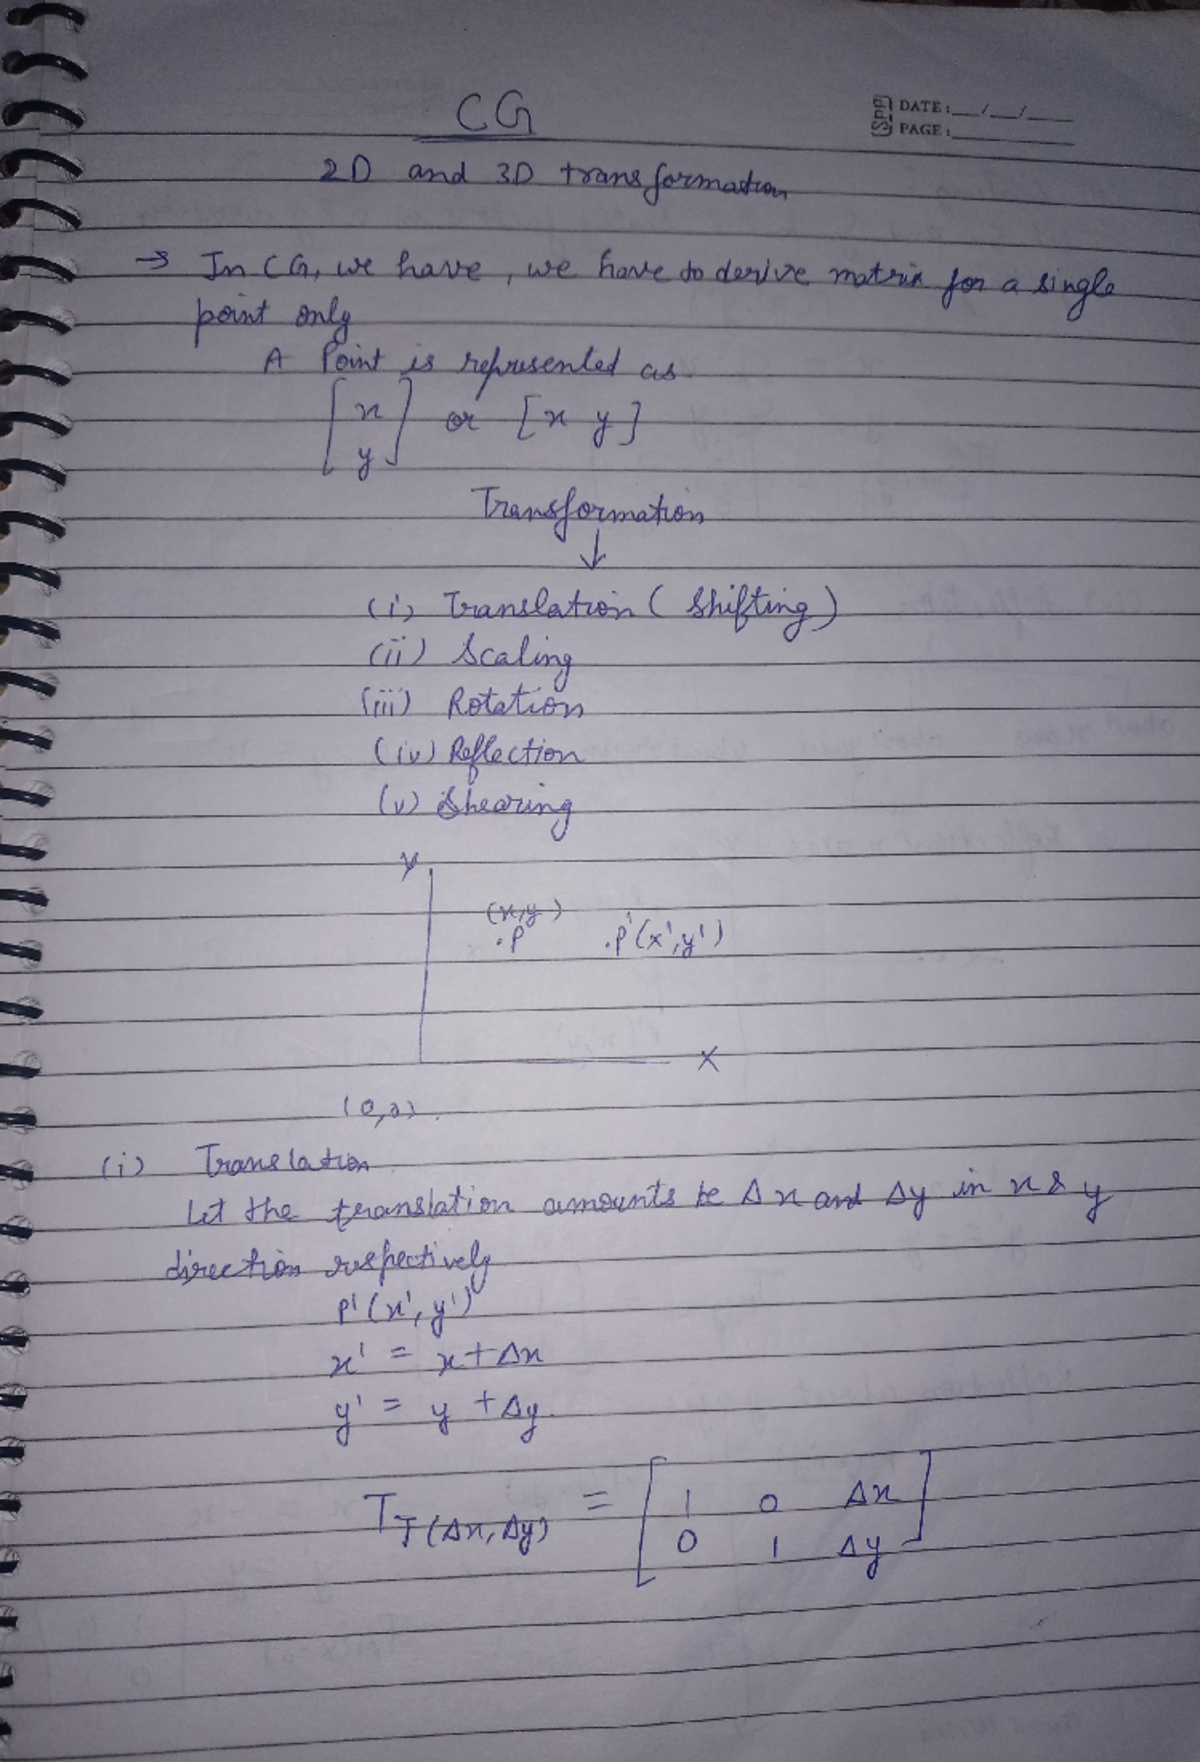 CG
Spp DATE: __/__/__
PAGE:
2D and 3D transformation
→ In CG, we have, we have to derive matrix for a single
point only
A Point is represented as
[x
y] or [x y]
Transformation
↓
(i) Translation (Shifting)
(ii) Scaling
(iii) Rotation
(iv) Reflection
(v) Shearing
Y
(x,y)
.P .P'(x',y')
X
(0,0)
(i) Translation
Let the translation amounts be Δx and Δy in x & y
direction respectively
P'(x', y')
x' = x+Δx
y' = y +Δy
T T(Δx, Δy) = [1 0 Δx
0 1 Δy]